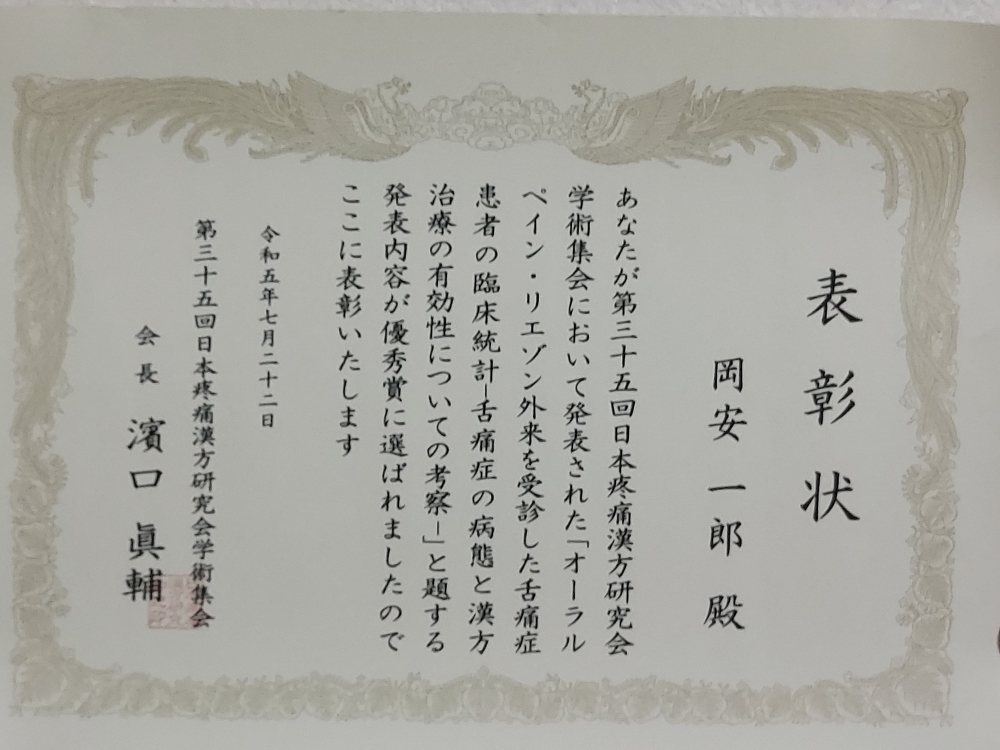 表彰状
岡安一郎殿
あなたが第三十五回日本疼痛漢方研究会
学術集会において発表された「オーラル
ペイン・リエゾン外来を受診した舌痛症
患者の臨床統計－舌痛症の病態と漢方
治療の有効性についての考察－」と題する
発表内容が優秀賞に選ばれましたので
ここに表彰いたします
令和五年七月二十二日
第三十五回日本疼痛漢方研究会学術集会
会長 濱口眞輔